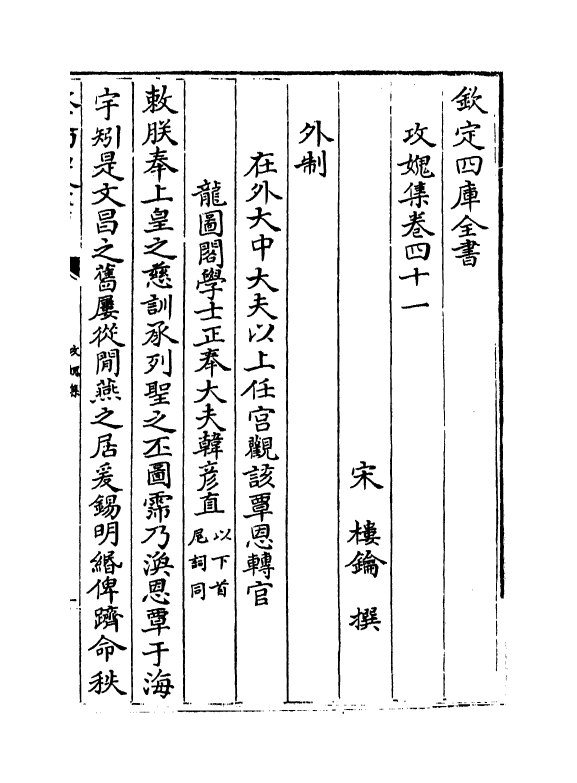 欽定四庫全書
攻媿集卷四十一
宋 樓鑰 撰
外制
在外大中大夫以上任宫觀該覃恩轉官
龍圖閣學士正奉大夫韓彦直以下首尾詞同
敕朕奉上皇之慈訓承列聖之丕圖霈乃渙恩覃于海
宇矧是文昌之舊屢從閒燕之居爰錫明緡俾躋命秩
攻媿集